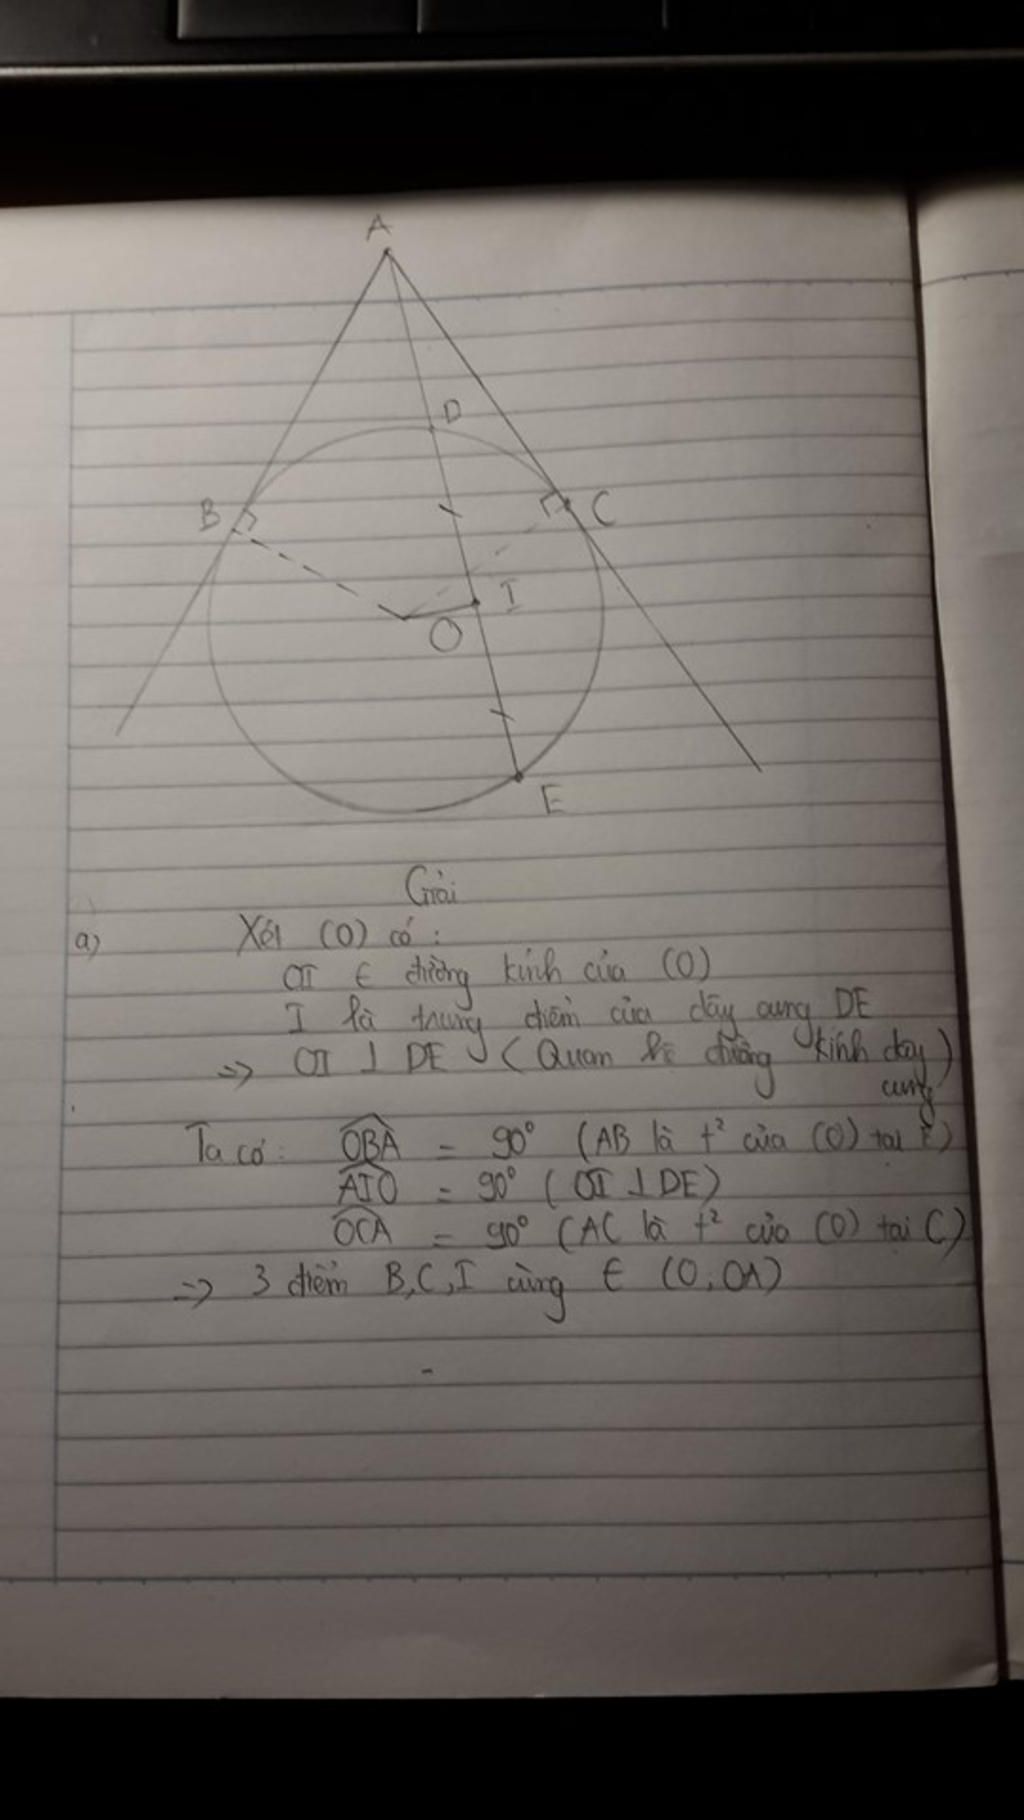 A
D
B
C
I
O
E
Giải
a) Xét (O) có :
OI ∈ đường kính của (O)
I là trung điểm của dây cung DE
=> OI ⊥ DE (Quan hệ đường kính dây
cung)
Ta có: OBA = 90° (AB là t² của (O) tại
AIO = 90° (OI ⊥ DE)
OCA = 90° (AC là t² của (O) tại C)
=> 3 điểm B,C,I cùng ∈ (O, OA)